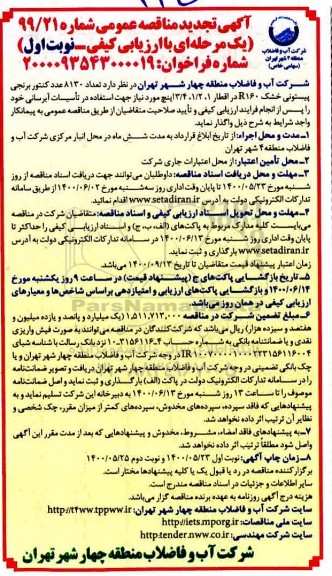 آگهی تجدید مناقصه عمومی شماره ۹۹/۲۱
(یک مرحله‌ای با ارزیابی کیفی) – نوبت اول
شماره فراخوان: ۲۰۰۰۰۹۳۵۴۳۰۰۰۰۱۹
شرکت آب و فاضلاب
منطقه ۴ شهر تهران
(سهامی خاص)
شرکت آب و فاضلاب منطقه چهار شهر تهران در نظر دارد تعداد ۸۱۳۰ عدد کنتور برنجی
پیستونی خشک R۱۶۰ در اقطار ۱، ۱/۲، ۳/۴ اینچ مورد نیاز جهت استفاده در تأسیسات آبرسانی خود
را پس از انجام فرایند ارزیابی کیفی و تأیید صلاحیت متقاضیان از طریق مناقصه عمومی به پیمانکار
واجد شرایط به شرح ذیل واگذار نماید.
۱- مدت و محل اجراء: از تاریخ ابلاغ قرارداد به مدت شش ماه در محل انبار مرکزی شرکت آب و
فاضلاب منطقه ۴ شهر تهران
۲- محل تأمین اعتبار: از محل اعتبارات جاری شرکت
۳- مهلت و محل دریافت اسناد مناقصه: داوطلبان می‌توانند جهت دریافت اسناد مناقصه از روز
شنبه مورخ ۱۴۰۰/۰۵/۲۳ تا پایان وقت اداری روز سه‌شنبه مورخ ۱۴۰۰/۰۶/۰۲ از طریق سامانه
تدارکات الکترونیکی دولت به آدرس www.setadiran.ir اقدام نمایند.
۴- مهلت و محل تحویل اسناد ارزیابی کیفی و اسناد مناقصه: متقاضیان شرکت در مناقصه
می‌بایست کلیه مدارک مربوط به پاکت‌های (الف، ب، ج) و اسناد ارزیابی کیفی را حداکثر تا
پایان وقت اداری روز شنبه مورخ ۱۴۰۰/۰۶/۱۳ در سامانه تدارکات الکترونیکی دولت به آدرس
www.setadiran.ir بارگذاری و ثبت نمایند.
زمان اعتبار پیشنهاد قیمت متقاضیان تا تاریخ ۱۴۰۰/۰۹/۱۳ می‌باشد.
۵- تاریخ بازگشایی پاکت‌های ج (پیشنهاد قیمت) در ساعت ۹ روز یکشنبه مورخ
۱۴۰۰/۰۶/۱۴ و بازگشایی پاکت‌های ارزیابی و امتیازدهی براساس شاخص‌ها و معیارهای
ارزیابی کیفی در همان روز می‌باشد.
۶- مبلغ تضمین شرکت در مناقصه ۱,۵۱۱,۷۱۳,۰۰۰ (یک میلیارد و پانصد و یازده میلیون و
هفتصد و سیزده هزار) ریال می‌باشد که شرکت‌کنندگان در مناقصه می‌توانند به صورت فیش واریزی
نقدی و یا ضمانتنامه بانکی به شماره حساب
در وجه شرکت آب و فاضلاب منطقه چهار شهر تهران و یا
چک بانکی تضمینی در وجه شرکت آب و فاضلاب منطقه چهار شهر تهران دریافت و تصویر ضمانتنامه
را در سامانه تدارکات الکترونیک دولت در پاکت (الف) بارگذاری و ثبت نمایند و اصل ضمانتنامه
موصوف را تا ساعت ۱۳ روز شنبه مورخ ۱۴۰۰/۰۶/۱۳ به دبیرخانه این شرکت تسلیم نماید و به
پیشنهادهایی که فاقد سپرده، سپرده‌های مخدوش، سپرده‌های کمتر از میزان مقرر، چک شخصی و
نظایر آن ترتیب اثر داده نخواهد شد.
۷- به پیشنهادهای فاقد امضاء، مشروط، مخدوش و پیشنهادهایی که بعد از مدت مقرر این آگهی
وصول شود مطلقاً ترتیب اثر داده نخواهد شد.
۸- زمان چاپ آگهی: نوبت اول ۱۴۰۰/۰۵/۲۳ و نوبت دوم ۱۴۰۰/۰۵/۲۵
برگزارکننده مناقصه در رد یا قبول یک یا کلیه پیشنهادها مختار است.
سایر اطلاعات و جزئیات در اسناد مناقصه مندرج است.
هزینه درج آگهی روزنامه به عهده برنده مناقصه گزار می‌باشد.
سایت شرکت آب و فاضلاب منطقه چهار شهر تهران: http://t4ww.tpww.ir
سایت ملی مناقصات: http://iets.mporg.ir
سایت شرکت مهندسی: http:tender.nww.co.ir
شرکت آب و فاضلاب منطقه چهار شهر تهران